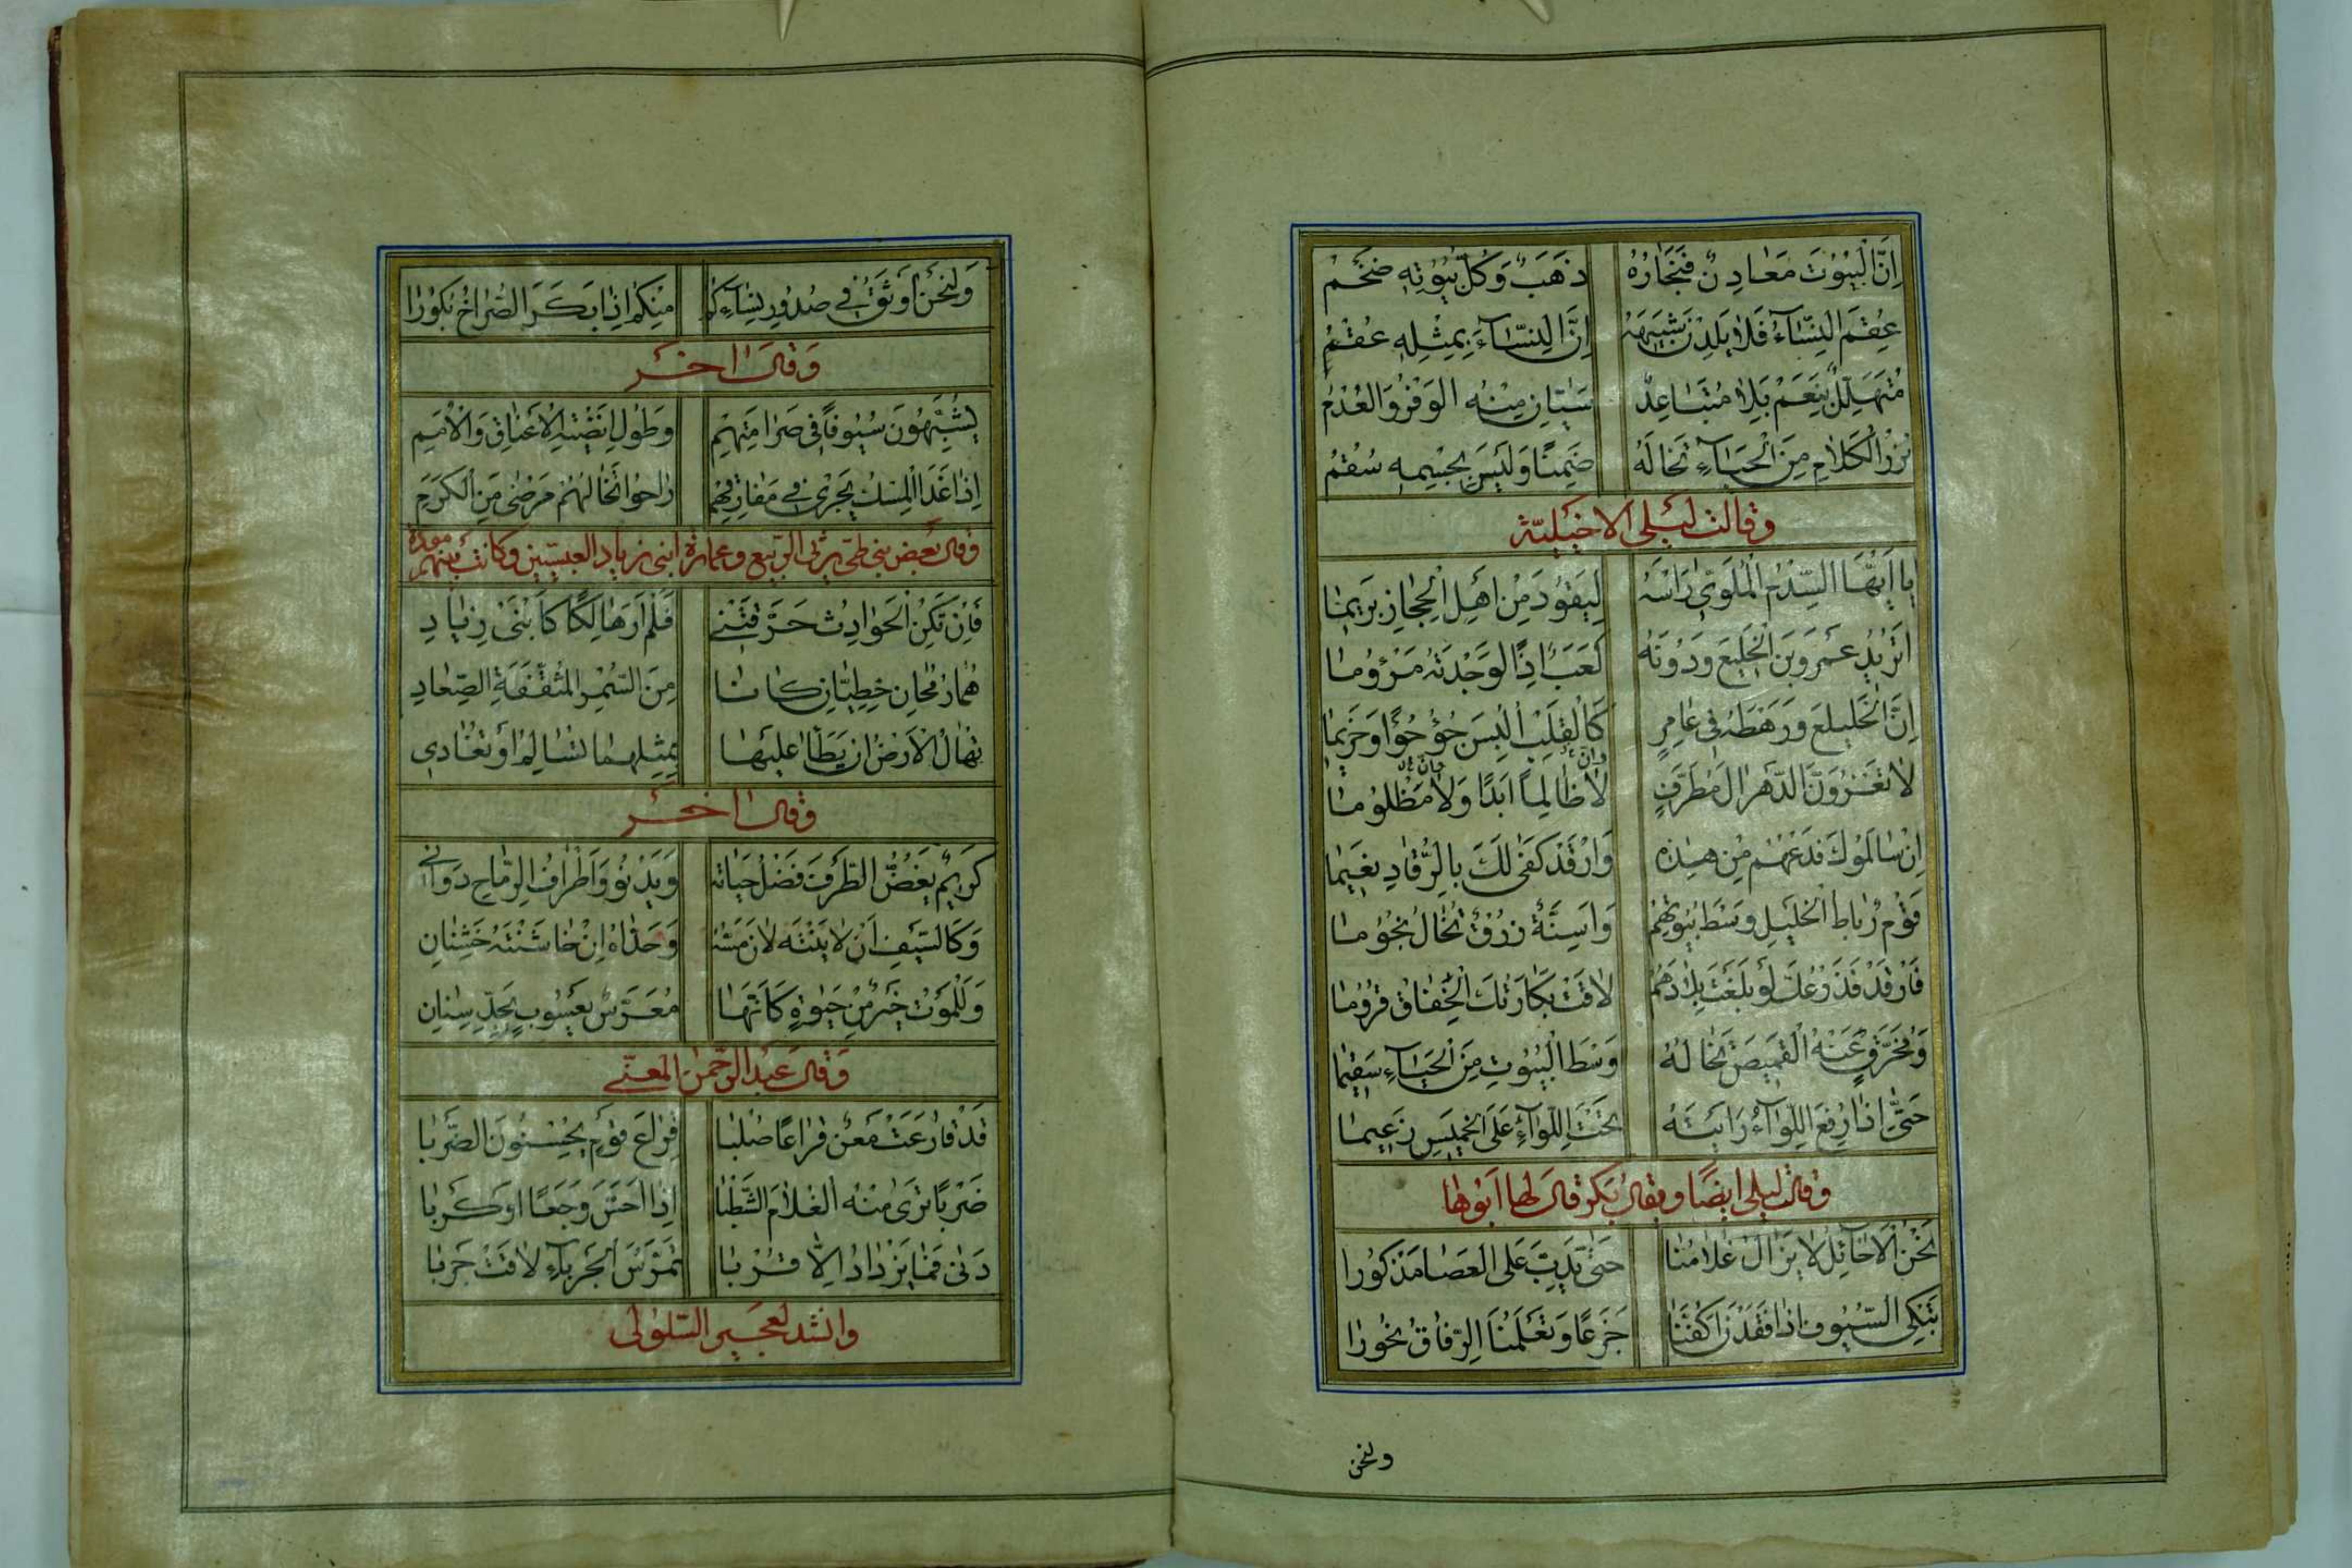 اِنَّ الْبُيُوتَ مَعَادِنٌ فَنِجَارُهُ ذَهَبٌ وَكُلُّ بُيُوتِهِ ضَخْمُ
عُقِمَ النِّسَآءُ فَلَا يَلِدْنَ شَبِيهَهُ اِنَّ النِّسَآءَ بِمِثْلِهِ عُقْمُ
مُتَهَلِّلٌ بِنَعَمْ بِلَا مُتَبَاعِدٌ سَيَّانِ مِنْهُ الْوَفْرُ وَالْعُدْمُ
نَزْرُ الْكَلَامِ مِنَ الْحَيَآءِ تَخَالُهُ ضَمِنًا وَلَيْسَ بِجِسْمِهِ سُقْمُ
وقالت ليلى الاخيليّة
يَا اَيُّهَا السَّدِمُ الْمُلَوِّي رَاْسَهُ لِيَقُودَ مِنْ اَهْلِ الْحِجَازِ بَرِيمَا
اَتُرِيدُ عَمْرَوبْنَ الْخَلِيعِ وَدُونَهُ كَعْبٌ اِذًا لَوَجَدْتَهُ مَرْؤُومَا
اِنَّ الْخَلِيلَعَ وَرَهْطَهُ فِي عَامِرٍ كَالْقَلْبِ اُلْبِسَ جُؤْجُؤًا وَحَزِيمَا
لَا تَغْزُوَنَّ الدَّهْرَ اٰلَ مُطَرِّفٍ لَا ظَالِمًا اَبَدًا وَلَا مَظْلُومَا
اِنْ سَالَمُوكَ فَدَعْهُمُ مِنْ هٰذِهِ وَارْقُدْ كَفٰى لَكَ بِالرُّقَادِ نَعِيمَا
قَوْمٌ رِبَاطُ الْخَيْلِ وَسْطَ بُيُوتِهِمْ وَاَسِنَّةٌ زُرْقٌ تُخَالُ نُجُومَا
فَارْقُدْ فَذَرْعُكَ لَوْ بَلَغْتَ بِلَادَهُمْ لَاقَتْ بِكَارَتُكَ الْخِفَاقُ قُرُومَا
وَمُخَرَّقٍ عَنْهُ الْقَمِيصُ تَخَالُهُ وَسْطَ الْبُيُوتِ مِنَ الْحَيَآءِ سَقِيمَا
حَتّٰى اِذَا رُفِعَ اللِّوَآءُ رَاَيْتَهُ تَحْتَ اللِّوَآءِ عَلَى الْخَمِيسِ زَعِيمَا
وقالت ليلى ايضًا ويقال بَكر قال لها ابوها
نَحْنُ الْاَخَائِلُ لَا يَزَالُ غُلَامُنَا حَتّٰى يَدِبَّ عَلَى الْعَصَا مَذْكُورَا
تَبْكِي السُّيُوفُ اِذَا فَقَدْنَ اَكُفَّنَا جَزَعًا وَتَعْلَمُنَا الرِّفَاقُ بُحُورَا
ولنحن
وَلَنَحْنُ اَوْثَقُ فِي صُدُورِ نِسَآءِكُمْ مِنْكُمْ اِذَا بَكَرَ الصُّرَاخُ بُكُورَا
وَقال اٰخر
يُشَبَّهُونَ سُيُوفًا فِي صَرَامَتِهِمْ وَطُولِ اَنْضِيَةِ الْاَعْنَاقِ وَالْاُمَمِ
اِذَا غَدَا الْمِسْكُ يَجْرِي فِي مَفَارِقِهِمْ رَاحُوا تَخَالُهُمْ مَرْضٰى مِنَ الْكَرَمِ
وقال بعض بني طي يرثي الربيع وعمارة ابني زياد العبسيّين وكانت بينهم مودة
فَاِنْ تَكُنِ الْحَوَادِثُ حَرَّقَتْنِي فَلَمْ اَرَ هَالِكًا كَابْنَيْ زِيَادِ
هُمَا رُمْحَانِ خَطِّيَّانِ كَانَا مِنَ السُّمْرِ الْمُثَقَّفَةِ الصِّعَادِ
تُهَالُ الْاَرْضُ اِنْ يَطَآ عَلَيْهَا بِمِثْلِهِمَا تُسَالِمُ اَوْ تُعَادِي
وقال اٰخر
كَرِيمٌ يَغُضُّ الطَّرْفَ فَضْلُ حَيَائِهِ وَيَدْنُو وَاَطْرَافُ الرِّمَاحِ دَوَانِي
وَكَالسَّيْفِ اِنْ لَايَنْتَهُ لَانَ مَسُّهُ وَحَدَّاهُ اِنْ خَاشَنْتَهُ خَشِنَانِ
وَلَلْمَوْتُ خَيْرٌ مِنْ حَيٰوةٍ كَاَنَّهَا مُعَرَّسُ يَعْسُوبٍ بِحَدِّ سِنَانِ
وَقال عبد الرّحمٰن المعنّي
قَدْ قَارَعَتْ مَعْنٌ قِرَاعًا صُلْبَا قِرَاعَ قَوْمٍ يُحْسِنُونَ الضَّرْبَا
ضَرْبًا تَرٰى مِنْهُ الْغُلَامَ الشَّطْبَا اِذَا اَحَسَّ وَجَعًا اَوْ كَرْبَا
دَنٰى فَمَا يَزْدَادُ اِلَّا قُرْبَا تَمَرُّسَ الْجَرْبَآءِ لَاقَتْ جَرْبَا
وانشد لعجير السّلولى